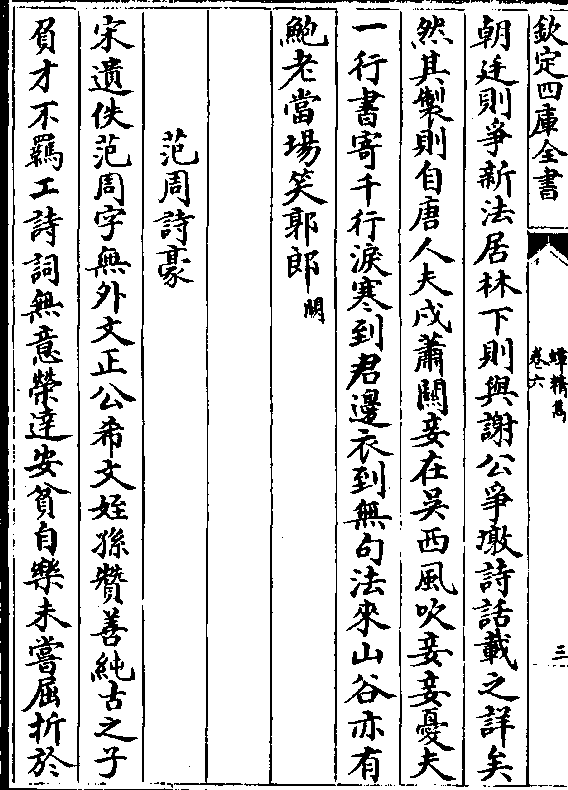 欽定四庫全書
蟫精雋
卷六
三
朝廷則爭新法居林下則與謝公爭墩詩話載之詳矣
然其製則自唐人夫戍蕭關妾在吳西風吹妾妾憂夫
一行書寄千行淚寒到君邊衣到無句法來山谷亦有
鮑老當場笑郭郎闕
范周詩豪
宋遺佚范周字無外文正公希文姪孫贊善純古之子
負才不羈工詩詞無意榮達安貧自樂未嘗屈折於